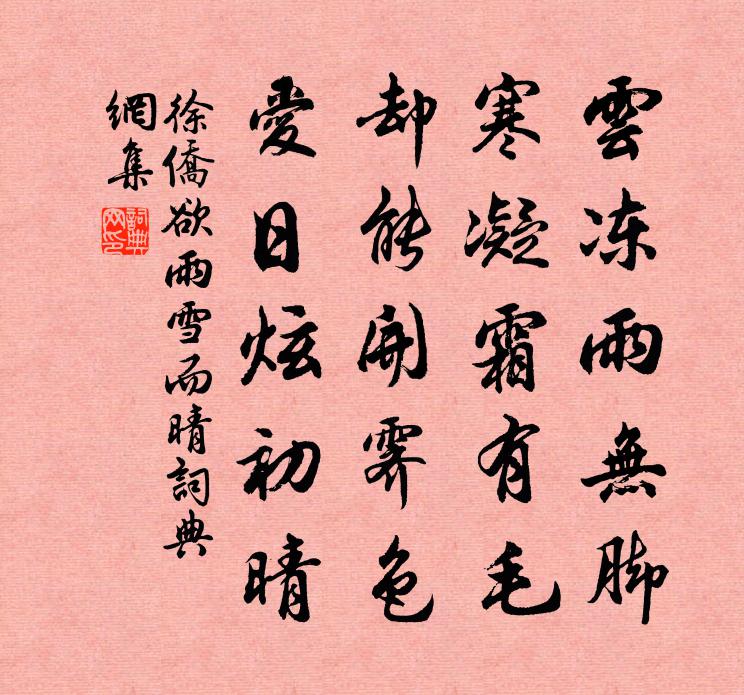 雲冻雨無脚
寒凝霜有毛
却能開霽色
愛日炫初晴
徐僑欲雨雪而晴詞典
網集
詞典網印